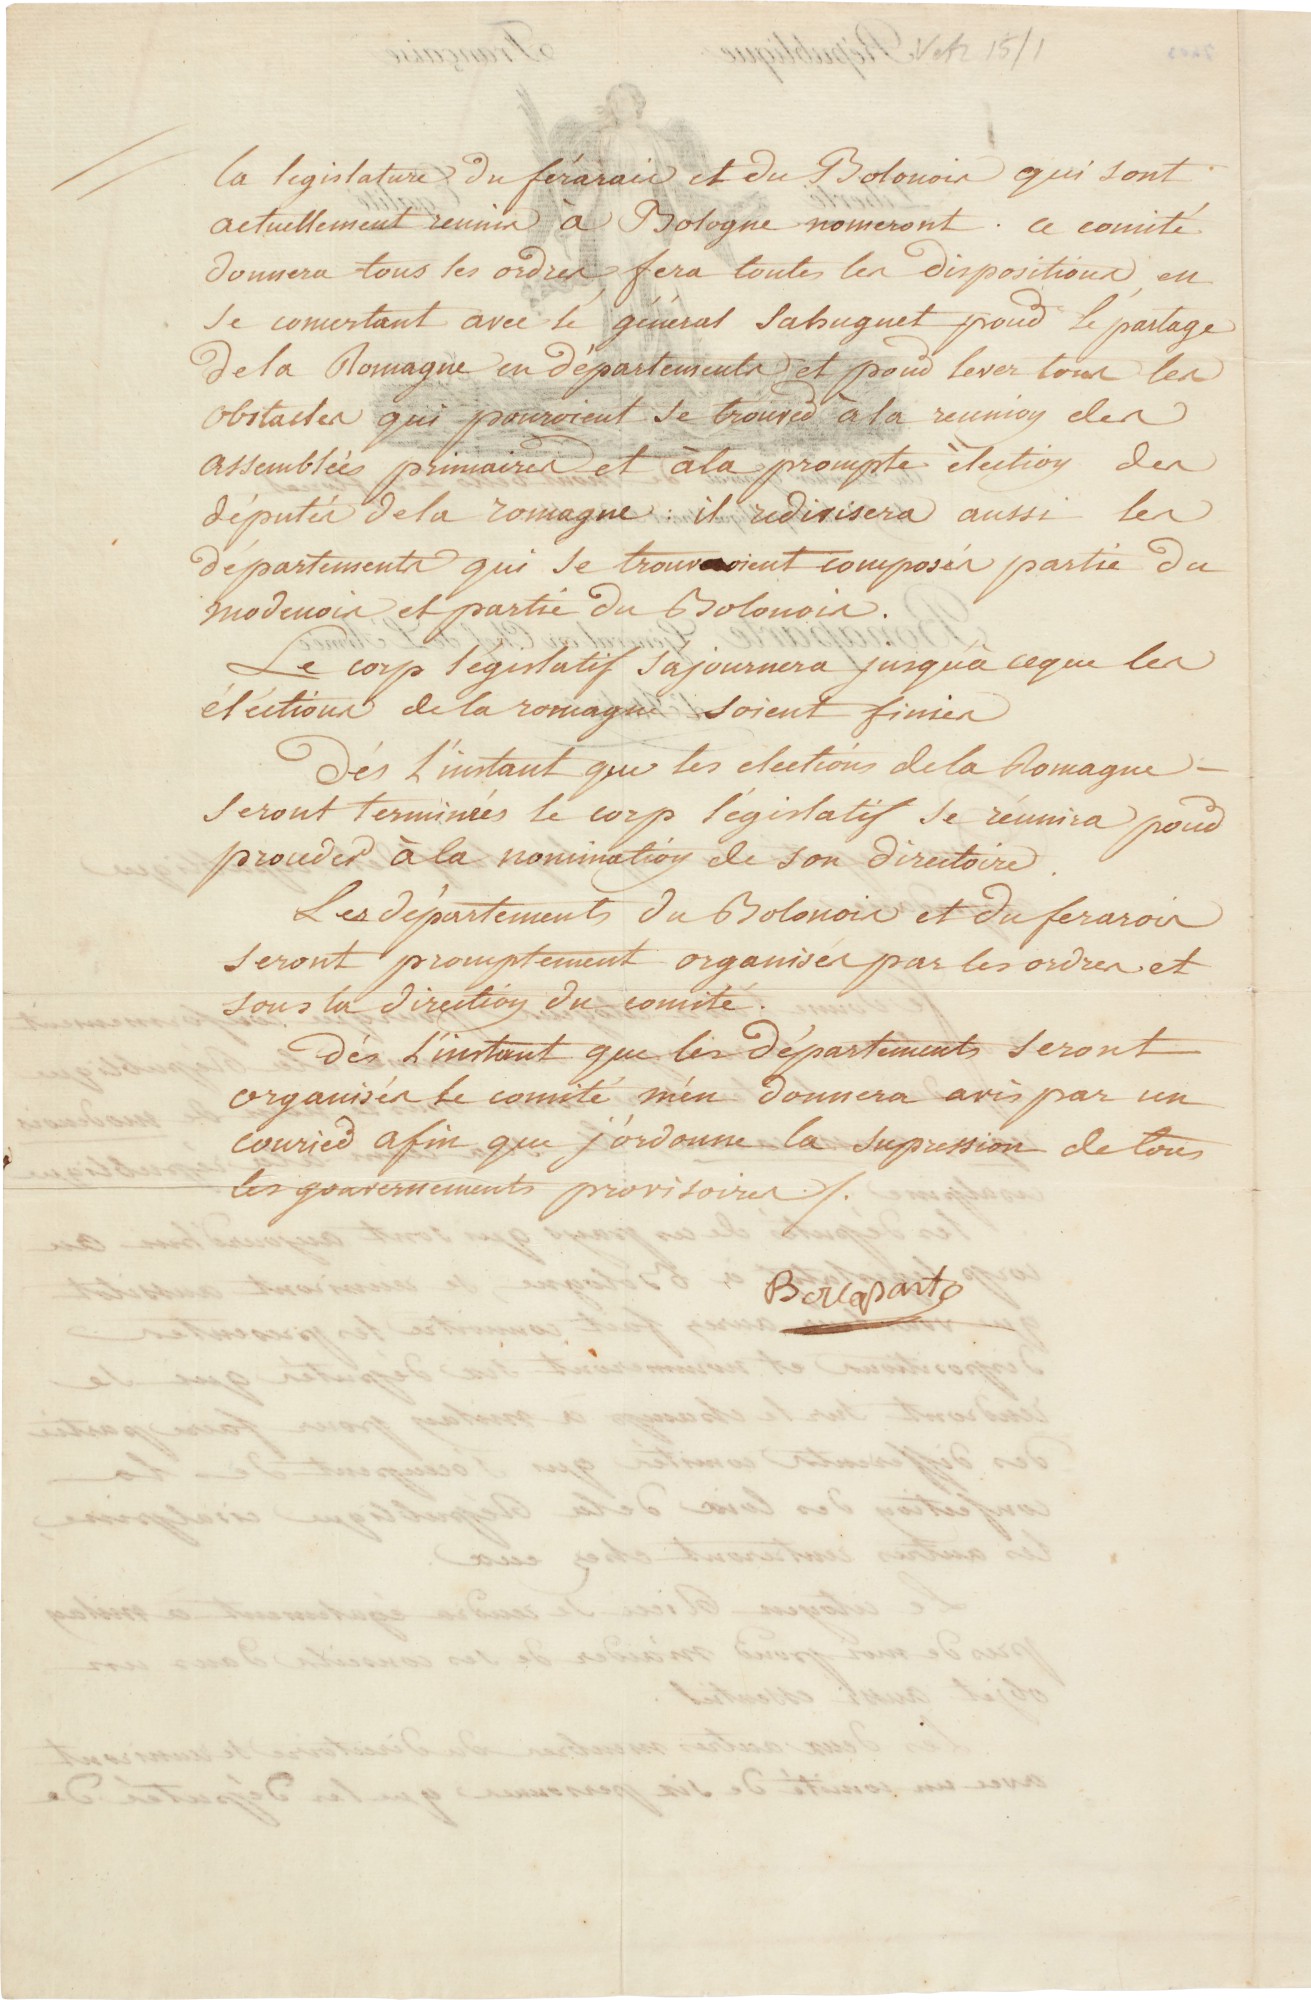 Vek 15/1
la législature du férarais et du Bolonois qui sont
actuellement reunis à Bologne nomeront. ce comité
donnera tous les ordres, fera toutes les dispositions, en
se concertant avec le général Sahuguet pour le partage
de la Romagne en départements et pour lever tous les
obstacles qui pouroient se trouver à la reunion des
assemblées primaires et à la prompte élection des
députés de la romagne : il redivisera aussi les
départements qui se trouveroient composés partie du
modenois et partie du Bolonois.
Le corp législatif s'ajournera jusqu'à ceque les
éléctions de la romagne soient finies
Dés l'instant que les elections de la Romagne –
seront terminées le corp législatif se réunira pour
proceder à la nomination de son directoire.
Les départements du Bolonois et du ferarois
seront promptement organisés par les ordres et
sous la direction du comité.
Dés l'instant que les départements seront
organisés le comité m'en donnera avis par un
courier afin que j'ordonne la supression de tous
les gouvernements provisoires ./.
Bonaparte